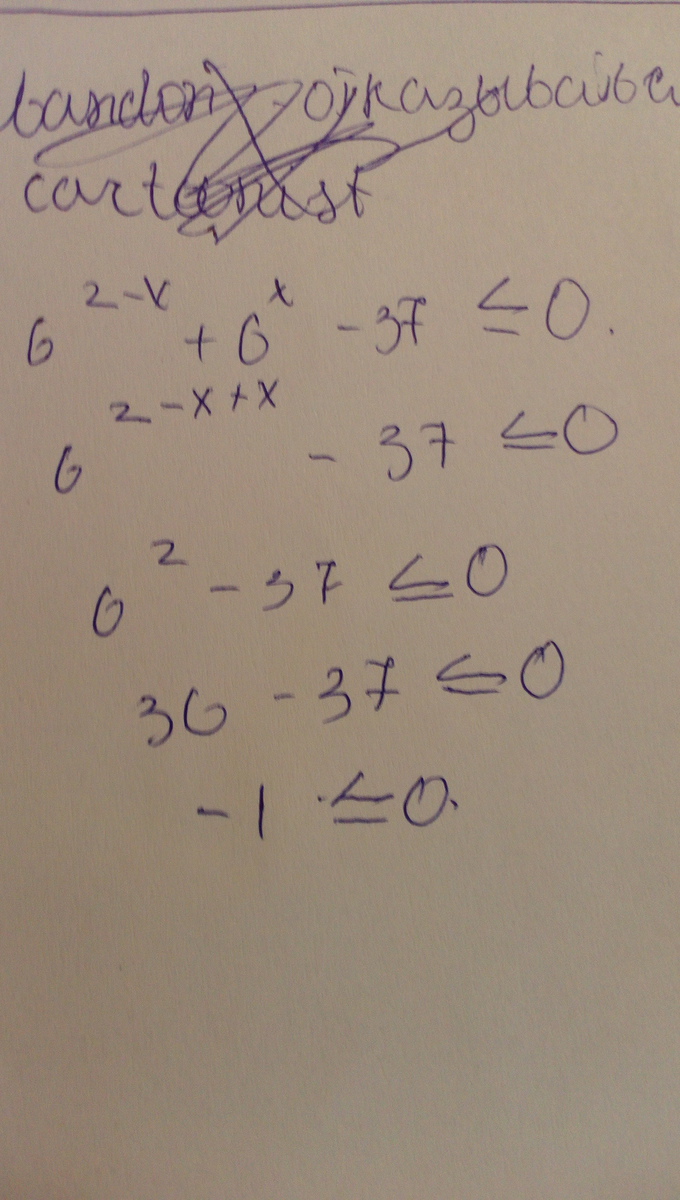 bandon - отказывать
cartoonist
6^{2-x} + 6^{x} - 37 ≤ 0.
6^{2-x+x} - 37 ≤ 0
6^{2} - 37 ≤ 0
36 - 37 ≤ 0
-1 ≤ 0.